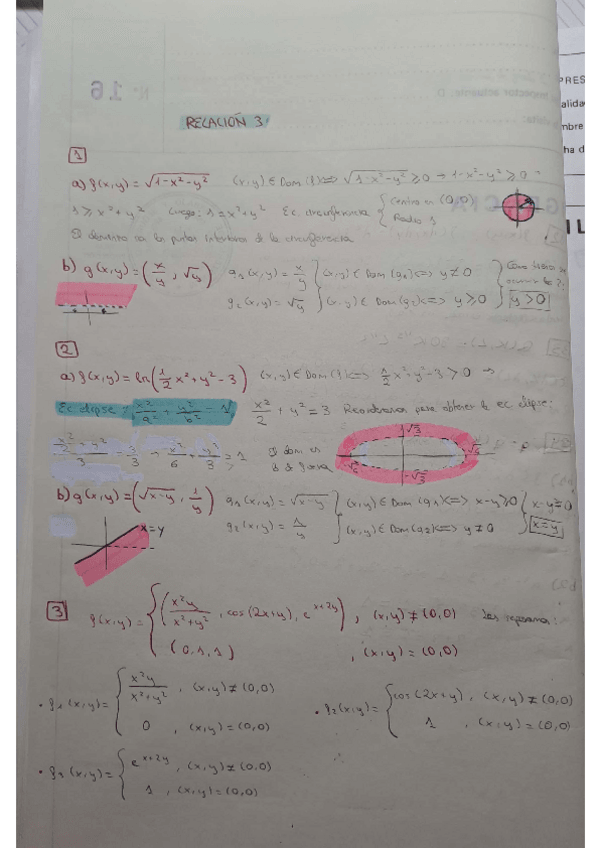 Nº 16
RELACIÓN 3
1
a) f(x,y) = √(1-x²-y²)   (x,y) ∈ Dom(f) ⟺ √(1-x²-y²) ≥ 0 → 1-x²-y² ≥ 0
1 ≥ x²+y²   Luego: 1 = x²+y²   Ec. circunferencia { centro en (0,0)
Radio 1
El dominio son los puntos interiores de la circunferencia
b) g(x,y) = (x/y, √y)   g₁(x,y) = x/y } (x,y) ∈ Dom(g₁) ⟺ y ≠ 0
g₂(x,y) = √y } (x,y) ∈ Dom(g₂) ⟺ y ≥ 0   y > 0
2
a) f(x,y) = ln(1/2 x² + y² - 3)   (x,y) ∈ Dom(f) ⟺ 1/2 x² + y² - 3 > 0 →
Ec elipse: x²/a² + y²/b² = 1   x²/2 + y² = 3   para obtener la ec elipse:
→ x²/6 + y²/3 = 1   El dom es   √3   √6   -√6   -√3
b) g(x,y) = (√(x-y), 1/y)   g₁(x,y) = √(x-y) } (x,y) ∈ Dom(g₁) ⟺ x-y ≥ 0 { x-y = 0
x = y   g₂(x,y) = 1/y } (x,y) ∈ Dom(g₂) ⟺ y ≠ 0   x = y
3
f(x,y) = { (x²y/(x²+y²), cos(2x+y), e^(x+2y)), (x,y) ≠ (0,0)
(0,1,1), (x,y) = (0,0)
• f₁(x,y) = { x²y/(x²+y²), (x,y) ≠ (0,0)
0, (x,y) = (0,0)
• f₂(x,y) = { cos(2x+y), (x,y) ≠ (0,0)
1, (x,y) = (0,0)
• f₃(x,y) = { e^(x+2y), (x,y) ≠ (0,0)
1, (x,y) = (0,0)